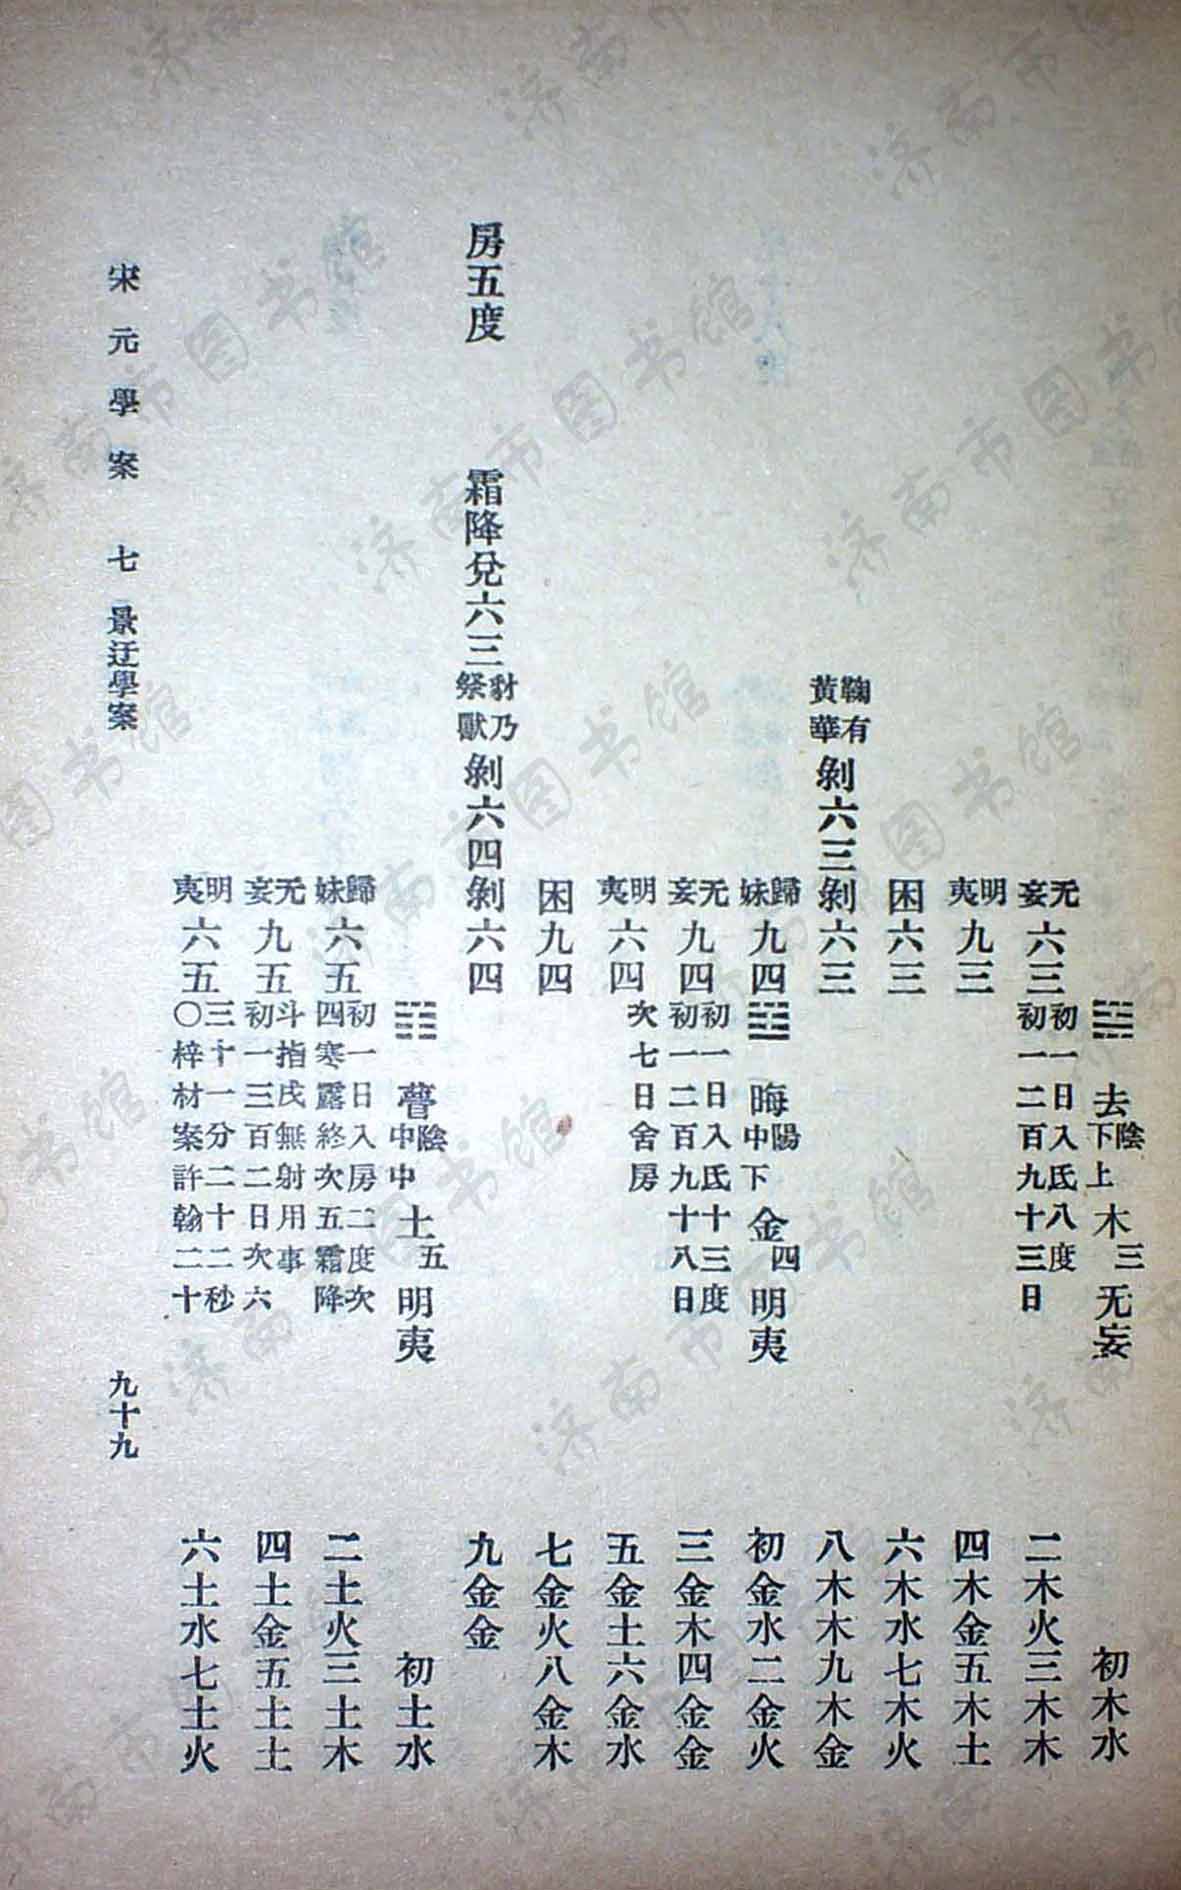 去陰下上木三无妄 初木水
无妄六三初一日入氐八度初一二百九十三日 二木火三木木
明夷九三 四木金五木土
困六三 六木水七木火
鞠有黃華剝六三剝六三 八木木九木金
歸妹九四 晦陽中下金四明夷 初金水二金火
无妄九四初一日入氐十三度初一二百九十八日 三金木四金金
明夷六四次七日舍房 五金土六金水
困九四 七金火八金木
房五度 霜降兌六三豺乃祭獸剝六四剝六四 九金金
瞢陰中中土五明夷 初土水
歸妹六五初一日入房二度次四寒露終次五霜降 二土火三土木
无妄九五斗指戌無射用事初一三百二日次六 四土金五土土
明夷六五三十一分二十二秒〇梓材案許翰二十 六土水七土火
宋元學案 七 景迂學案 九十九
济南市图书馆